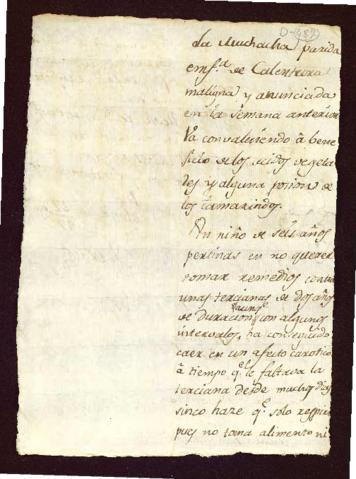 La Muchacha parida
emf.ª de Calentura
maligna y anunciada
en la semana anterior
Va convaleciendo à bene
ficio de los acidos vegeta
les y alguna posion de
los tamarindos.
Un niño de seis años
pertinas en no querer
tomar remedios contra
unas tercianas de dos años
de duracion aunq.e con algunos
intervalos, ha conseguido
caer en un afecto carotico
à tiempo q.e le faltava la
terciana desde muchos dias
sinco haze q.e solo respira
pues no toma alimento ni